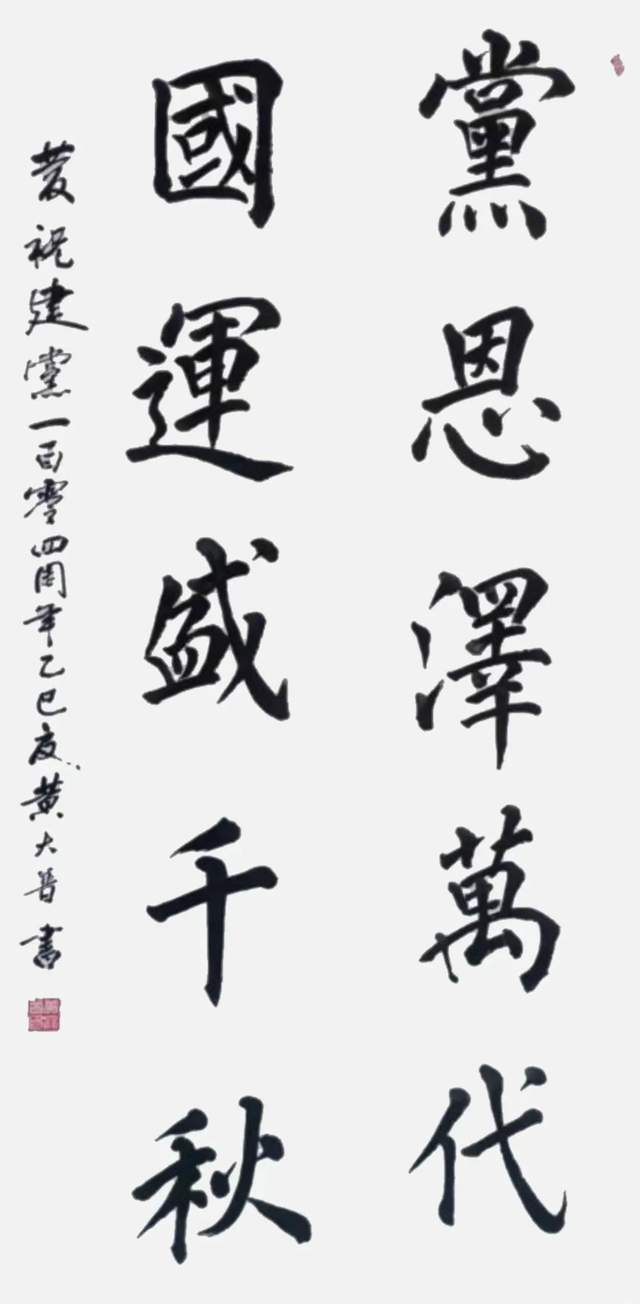 黨恩澤萬代
國運盛千秋
慶祝建黨一百零四周年乙巳夏黄大普書